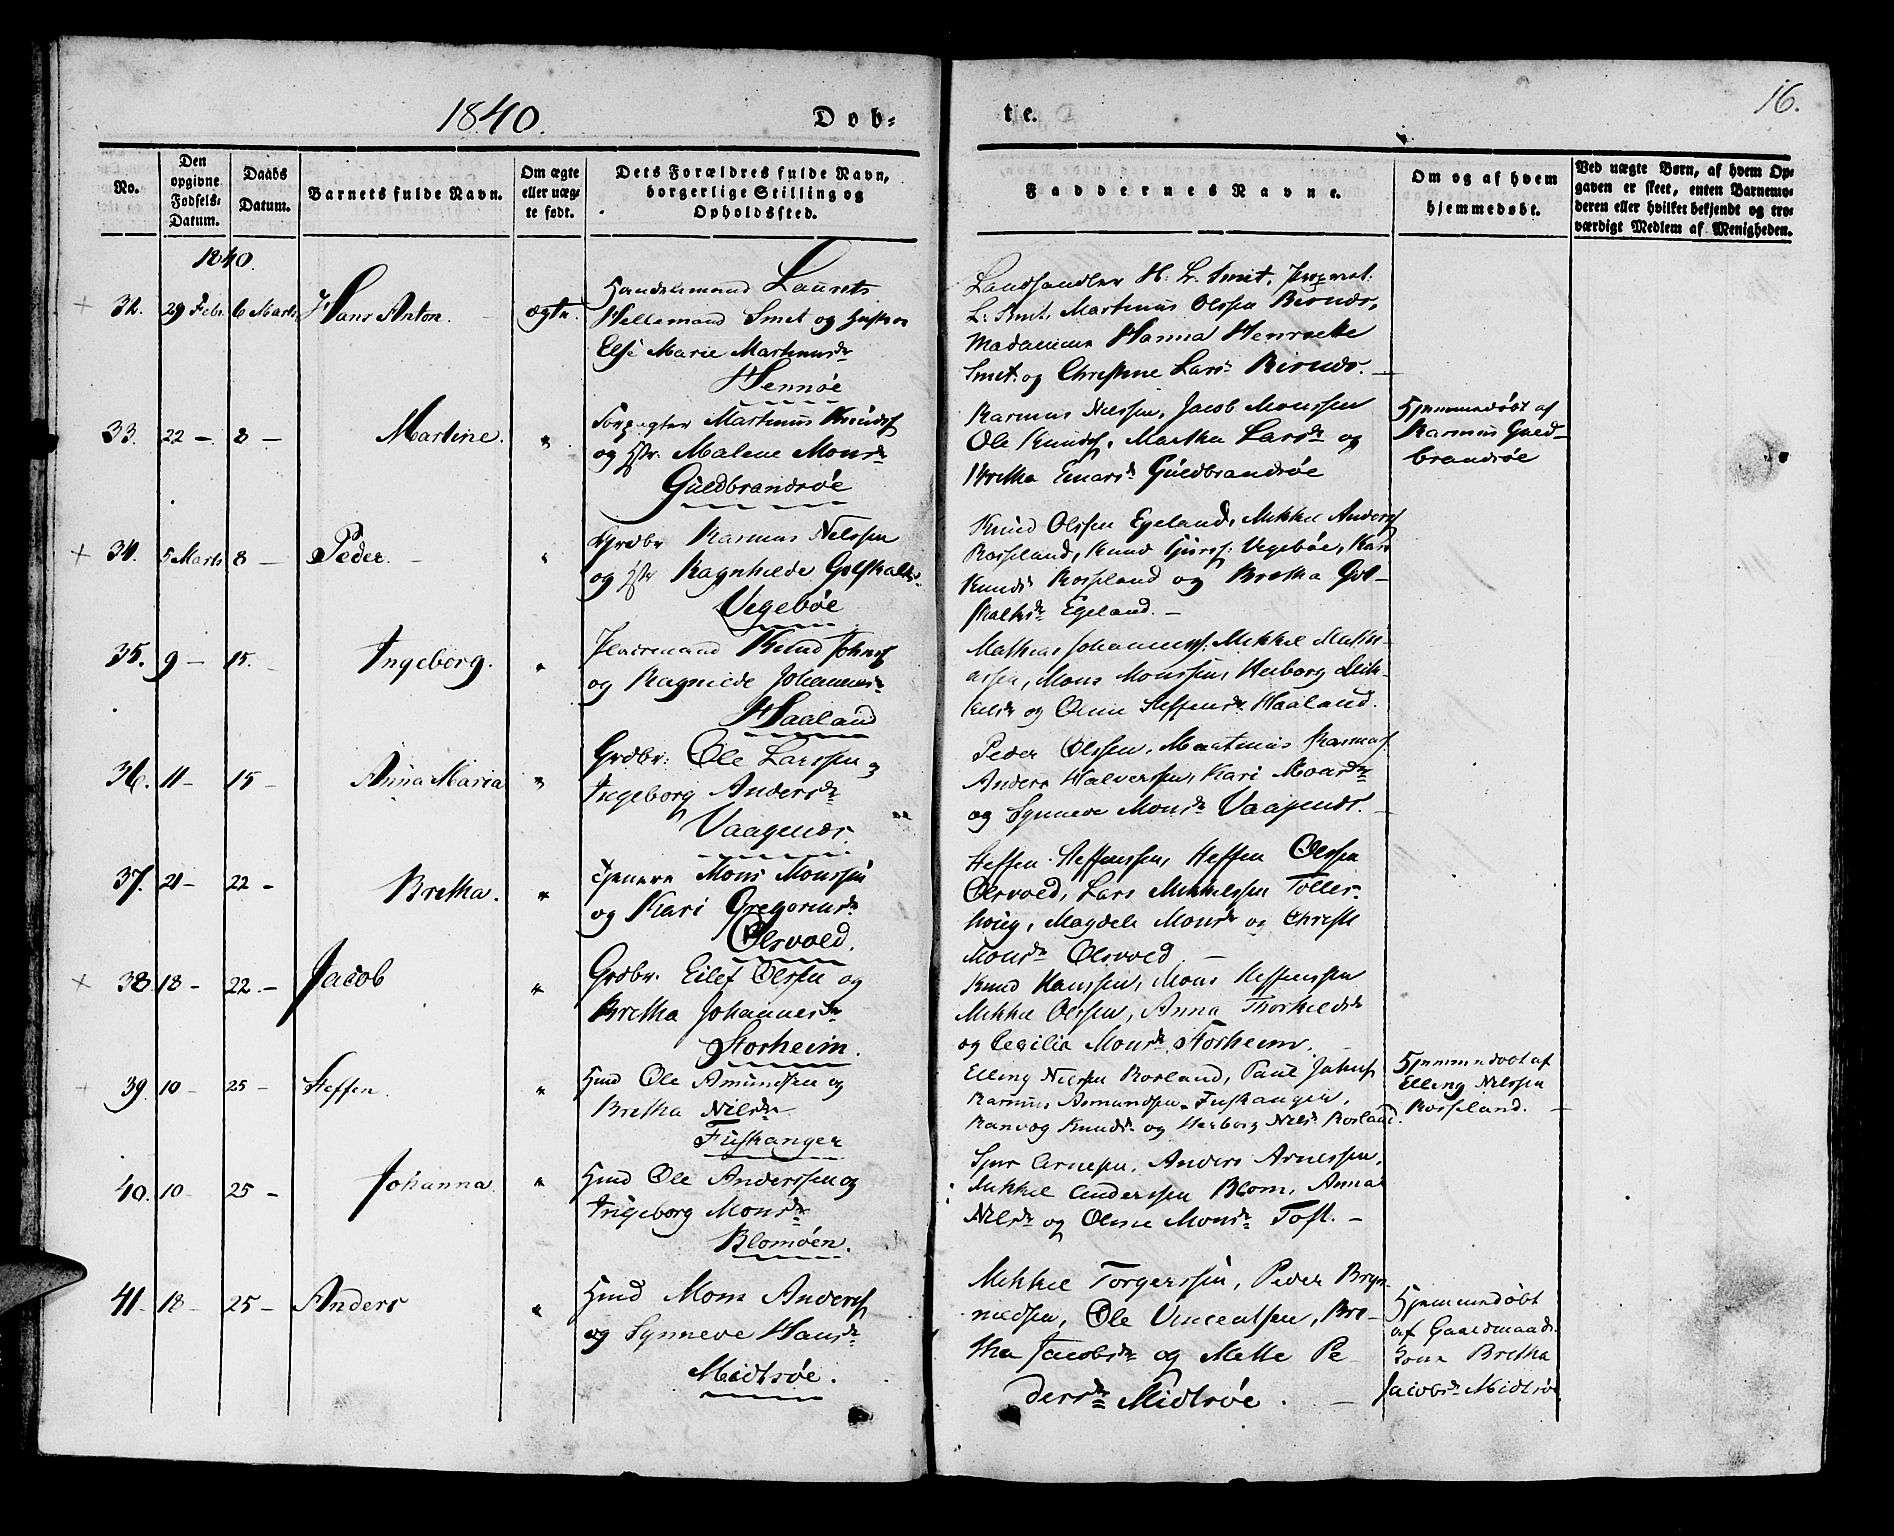 1840. Dob- te. 16.
No.
Den opgivne Fødsels-Datum.
Daabs Datum.
Barnets fulde Navn.
Om ægte eller uægte født.
Dets Forældres fulde Navn, borgerlige Stilling og Opholdssted.
Faddernes Navne.
Om og af hvem hjemmedøbt.
Ved uægte Børn, af hvem Opgaven er skeet, enten Barnemoderen eller hvilket bekjendt og troværdigt Medlem af Menigheden.
1840.
32. 29 Febr 6 Marts Hans Anton. ægte.
Handelsmand Laurits
Hellemand Smit og Hustrue
Else Marie Martinusdr
Hennøe
Landhandler H. L. Smit,
L. Smit, Martinus Olssen Birnds,
Madamme Hanna Henricke
Smit og Christine Larsdr Birnds.
33. 22 - 8 - Martine. "
Forpagter Martinus Knuds
og Hstr. Malene Monsdr
Guldbrandsøe
Rasmus Nilssen, Jacob Monssen
Ole Knuds, Martha Larsdr og
Bretha Einarsdr Guldbrandsøe
Hjemmedøbt af
Rasmus Guld-
brandsøe
34. 5 Marts 8 - Peder. - "
Grdbr Rasmus Nilssen
og Hstr Ragnhilde
Vegebøe
Knud Olssen Egeland, Mikkel Anders
Rosseland, Knud Vegebøe, Kari
Knudsdr Rosseland og Bretha Got-
skalksdr Egeland. -
35. 9 - 15. - Ingeborg. "
Knud Johns
og Ragnilde Johannesdr
Haaland
Mathias Johanness: Mikkel Mathi-
assen, Mons Monssen, Herborg Mik-
kelsdr og Oline Steffensdr Haaland.
36. 11 - 15 - Anna Maria "
Grdbr: Ole Larssen og
Ingeborg Andersdr
Vaagenes.
Peder Olssen, Martinus Rasmus
Anders Halverssen, Kari Monsdr
og Synneve Monsdr Vaagenes. -
37. 21 - 22 - Bretha. "
Tjenere Mons Monssen
og Kari Gregoriusdr
Olsvold.
Steffen Steffenssen, Steffen Olssen
Olsvold, Lars Mikkelssen Toller-
houg, Magdele Monsdr og Christi
Monsdr Olsvold -
38. 18 - 22. - Jacob "
Grdbr. Eilef Olssen og
Bretha Johannesdr
Storheim.
Knud Hanssen, Mons Steffenssen
Mikkel Olssen, Anna Thorkildsdr
og Cecilia Monsdr Storheim. -
39. 10 - 25 - Steffen. "
Hmd Ole Amundsen og
Bretha Nilsdr
Fuskanger
Elling Nilssen Rosland, Paul Johns
Rasmus Asmundsen Fuskanger,
Ranvog Knudsdr og Herborg Nilsdr Rosland.
Hjemmedøbt af
Elling Nilssen
Rosseland.
40. 10 - 25 - Johanna. "
Hmd Ole Anderssen og
Ingeborg Monsdr
Blomøen.
Sjur Arnesen, Anders Arnessen,
Mikkel Anderssen Blom, Anna
Nilsdr og Oline Monsdr Toft. -
41 - 18 - 25 - Anders "
Hmd Mons Anders
og Synneve Hansdr
Midtsøe.
Mikkel Torgerssen, Peder Bryn-
nildsen, Ole Vincentsen, Bre-
tha Jacobsdr og Mette Pe-
dersdr Midtsøe. -
Hjemmedøbt
af Gaardmands
Kone Bretha
Jacobsdr Midtsøe